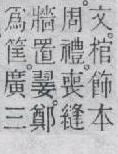 文棺飾本
周禮喪縫
牆置翣鄭
爲筐廣三